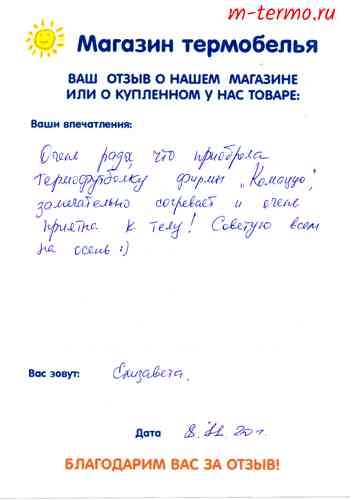 m-termo.ru
Магазин термобелья
ВАШ ОТЗЫВ О НАШЕМ МАГАЗИНЕ
ИЛИ О КУПЛЕННОМ У НАС ТОВАРЕ:
Ваши впечатления:
Очень рада, что приобрела
термофутболку фирмы
замечательно согревает и очень
приятна к телу! Советую всем
на осень :)
Вас зовут: Елизавета.
Дата
БЛАГОДАРИМ ВАС ЗА ОТЗЫВ!